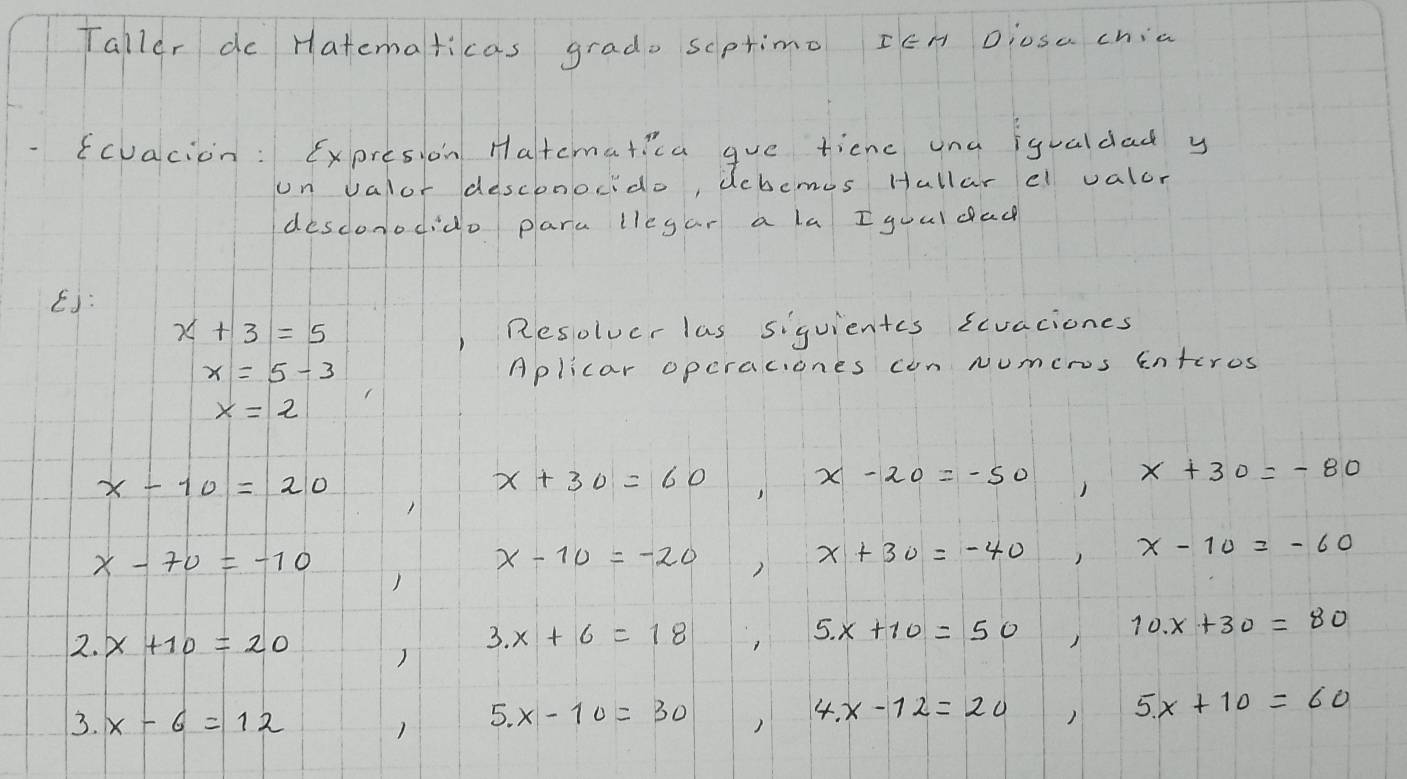 Taller de Matematicas grado septimo IEM Diosa chia
- Ecuación: Expresión Matematica que tiene una igualdad y
un valor desconocido, debemos Hallar el valor
desconocido para llegar a la Igualdad
Ej:
x + 3 = 5 , Resolver las siguientes Ecuaciones
x = 5 - 3 , Aplicar operaciones con Numeros Enteros
x = 2
x - 10 = 20 , x + 30 = 60 , x - 20 = -50 , x + 30 = -80
x - 70 = -10 , x - 10 = -20 , x + 30 = -40 , x - 10 = -60
2.x + 10 = 20 , 3.x + 6 = 18 , 5.x + 10 = 50 , 10.x + 30 = 80
3.x - 6 = 12 , 5.x - 10 = 30 , 4.x - 12 = 20 , 5.x + 10 = 60